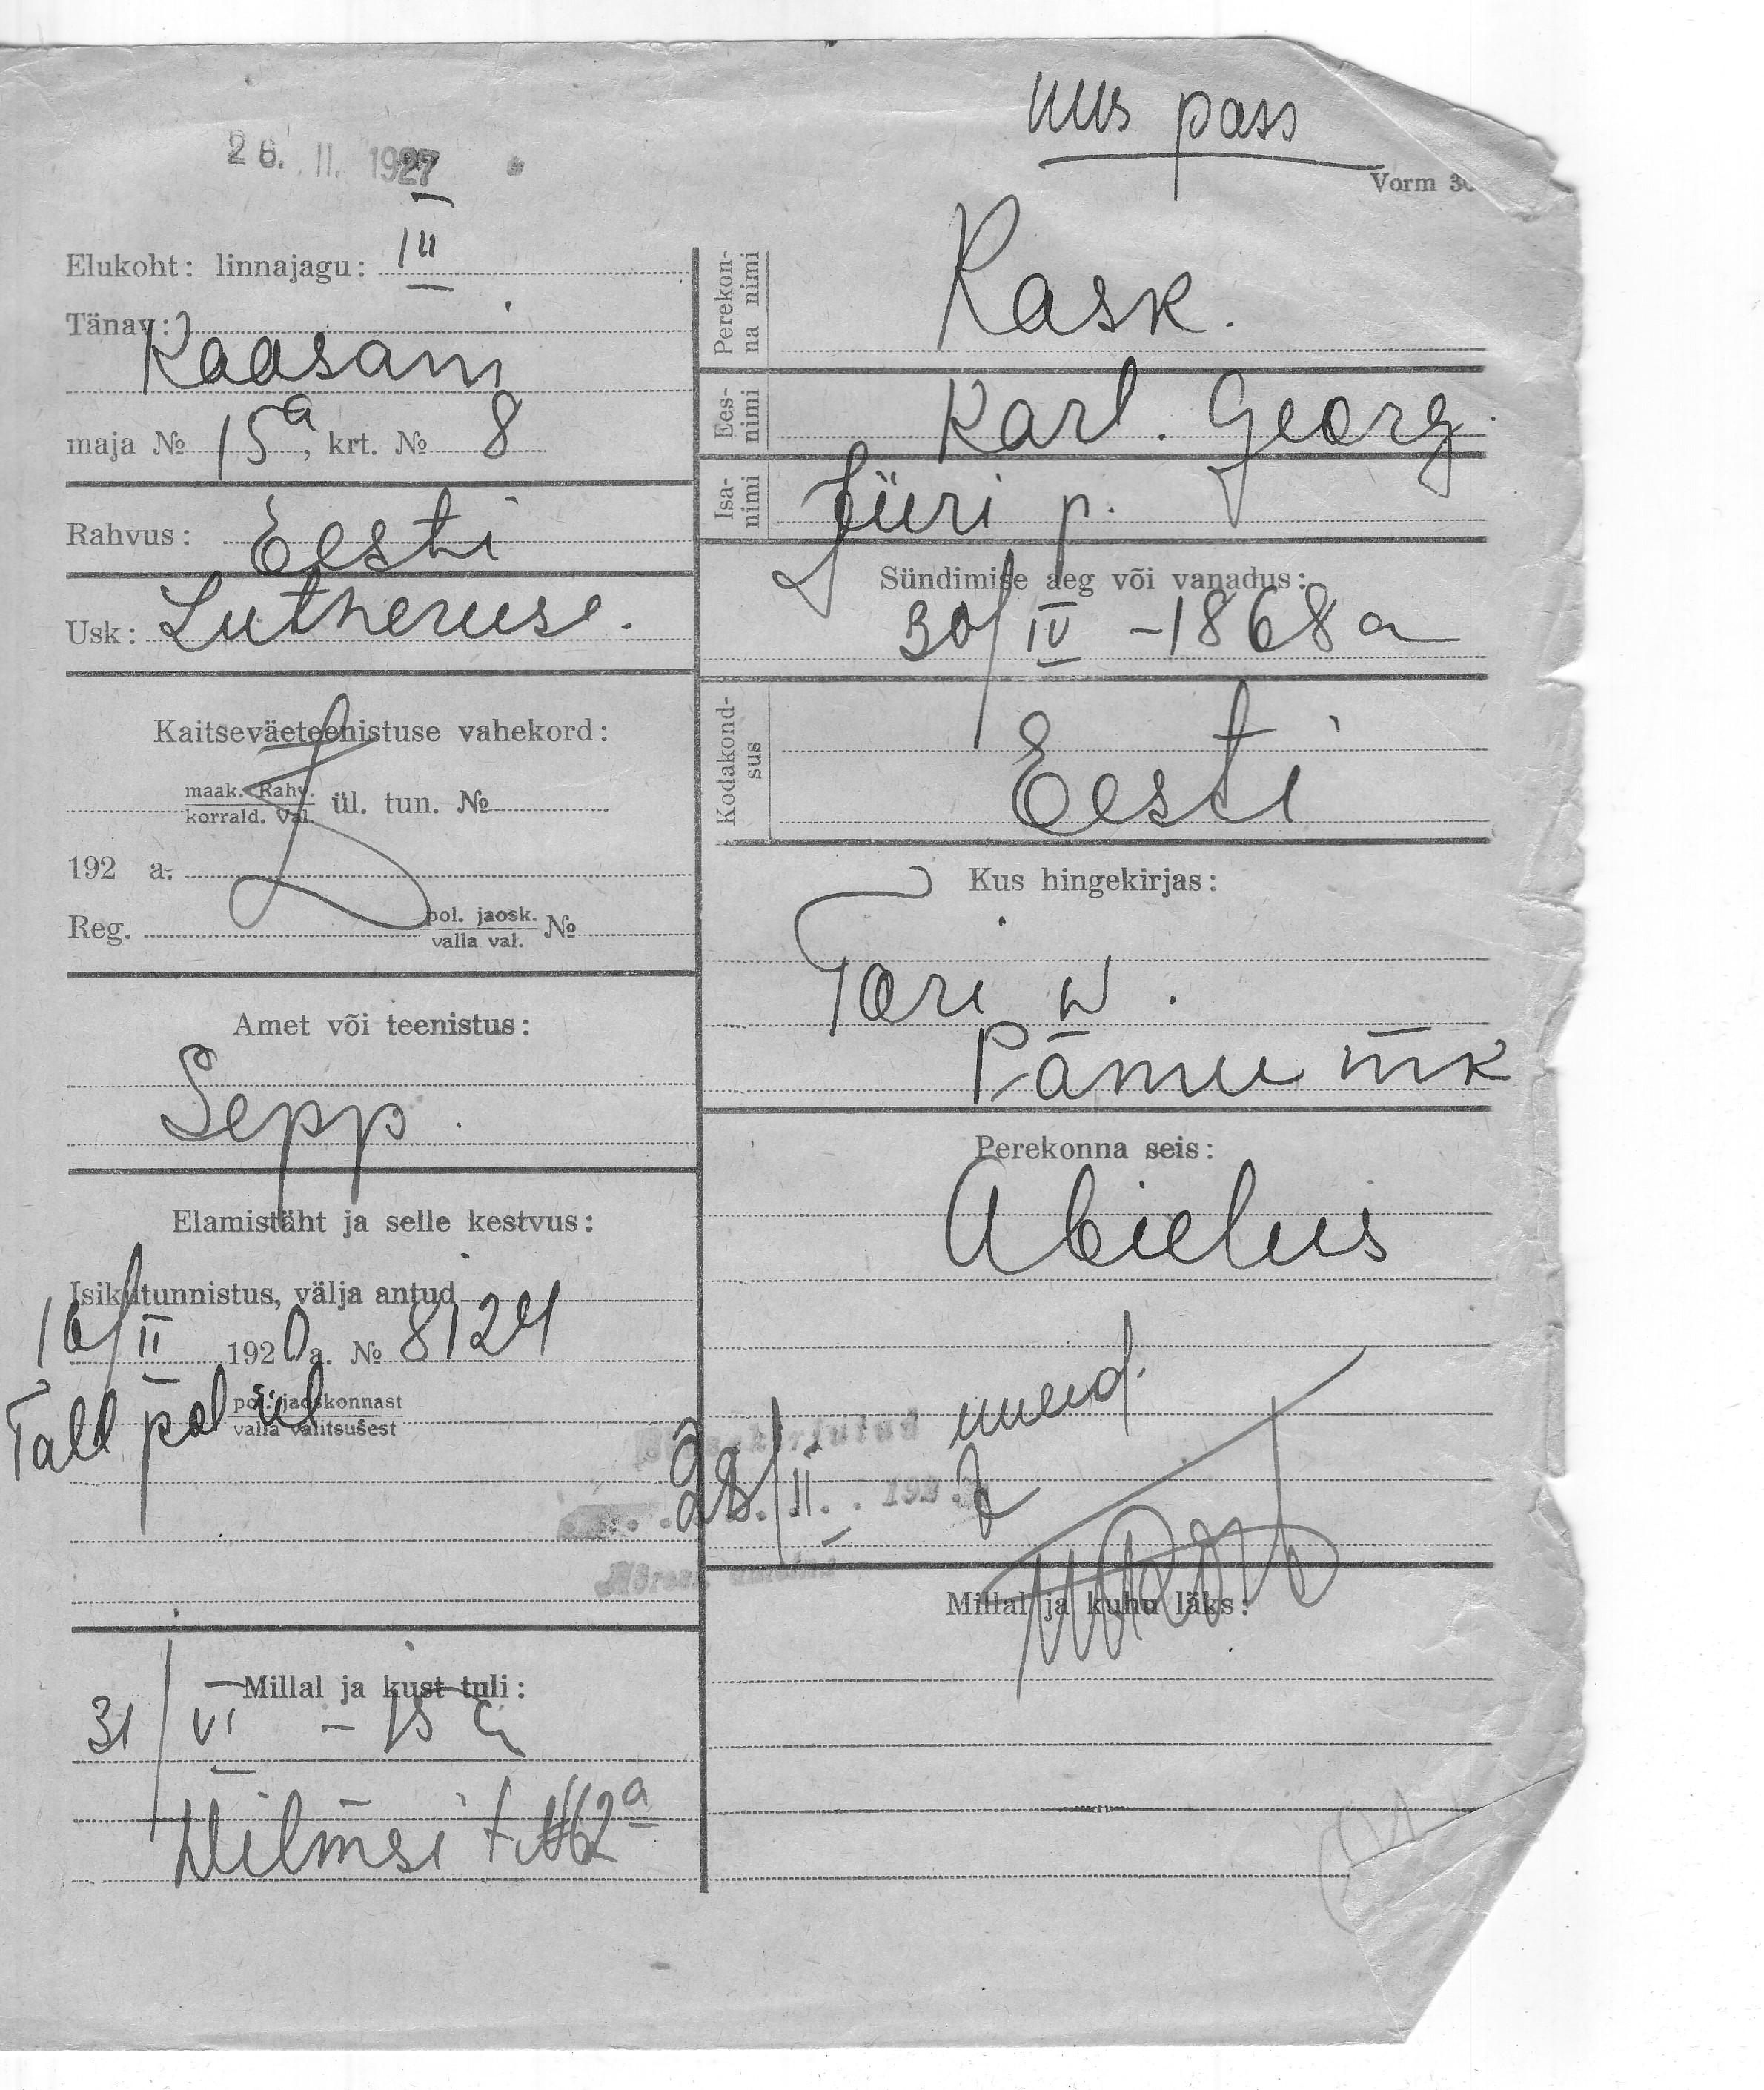 uus pass
26. II. 1927
Vorm 30
Elukoht: linnajagu: III
Tänav:
Kaasani
maja № 15a, krt. № 8
Rahvus: Eesti
Usk: Lutheruse.
Kaitseväeteenistuse vahekord:
maak. Rahv.
korrald. Val. ül. tun. №
192 a.
Reg. pol. jaosk.
valla val. №
Amet või teenistus:
Sepp.
Elamistäht ja selle kestvus:
Isikutunnistus, välja antud
16/II 1920 a. № 8124
Tall pol
pol. jaoskonnast
valla valitsusest
Millal ja kust tuli:
31/VI - 18 a
Wilmsi t. №62a
Perekonna nimi
Kask.
Eesnimi
Karl. Georg.
Isanimi
Jüri p.
Sündimise aeg või vanadus:
30/IV - 1868 a
Kodakondsus
Eesti
Kus hingekirjas:
Tori w.
Pärnu mk
Perekonna seis:
Abielus
28/II
Millal ja kuhu läks: